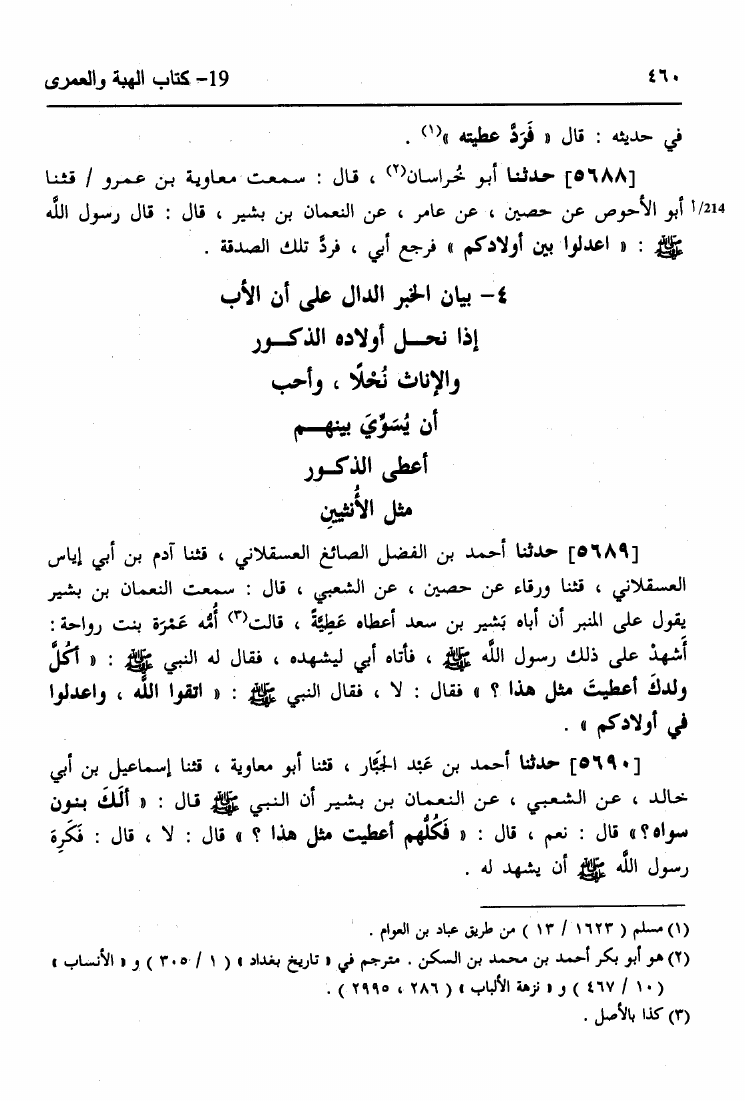 ٤٦٠ 19- كتاب الهبة والعمرى
في حديثه : قال « فَرَدَّ عطيته »(١) .
[٥٦٨٨] حدثنا أبو خُراسان(٢) ، قال : سمعت معاوية بن عمرو / قثنا
214/أ أبو الأحوص عن حصين ، عن عامر ، عن النعمان بن بشير ، قال : قال رسول اللَّه
ﷺ : « اعدلوا بين أولادكم » فرجع أبي ، فردَّ تلك الصدقة .
٤- بيان الخبر الدال على أن الأب
إذا نحل أولاده الذكور
والإناث نُحْلًا ، وأحب
أن يُسَوِّيَ بينهم
أعطى الذكور
مثل الأُنثيينِ
[٥٦٨٩] حدثنا أحمد بن الفضل الصائغ العسقلاني ، قثنا آدم بن أبي إياس
العسقلاني ، قثنا ورقاء عن حصين ، عن الشعبي ، قال : سمعت النعمان بن بشير
يقول على المنبر أن أباه بَشير بن سعد أعطاه عَطِيَّةً ، قالت(٣) أُمُّه عَمْرَة بنت رواحة :
أَشهِدْ على ذلك رسول اللَّه ﷺ ، فأتاه أبي ليشهده ، فقال له النبي ﷺ : « أَكُلَّ
ولدكَ أعطيتَ مثل هذا ؟ » فقال : لا ، فقال النبي ﷺ : « اتقوا اللَّه ، واعدلوا
في أولادكم » .
[٥٦٩٠] حدثنا أحمد بن عَبْد الجَبَّار ، قثنا أبو معاوية ، قثنا إسماعيل بن أبي
خالد ، عن الشعبي ، عن النعمان بن بشير أن النبي ﷺ قال : « ألَكَ بنون
سواه؟» قال : نعم ، قال : « فَكُلُّهم أعطيت مثل هذا ؟ » قال : لا ، قال : فَكَرِهَ
رسول اللَّه ﷺ أن يشهد له .
(١) مسلم ( ١٦٢٣ / ١٣ ) من طريق عباد بن العوام .
(٢) هو أبو بكر أحمد بن محمد بن السكن . مترجم في « تاريخ بغداد » ( ١ / ٣٠٥ ) و « الأنساب »
( ١٠ / ٤٦٧ ) و « نزهة الألباب » ( ٢٨٦ ، ٢٩٩٥ ) .
(٣) كذا بالأصل .